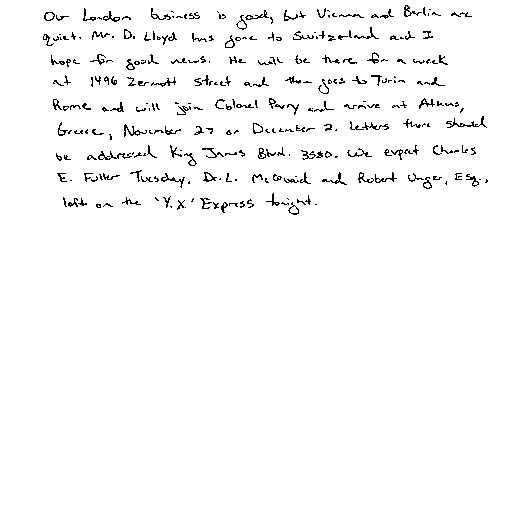 Our London business is good, but Vienna and Berlin are
quiet. Mr. D. Lloyd has gone to Switzerland and I
hope for good news. He will be there for a week
at 1496 Zermott Street and then goes to Turin and
Rome and will join Colonel Parry and arrive at Athens,
Greece, November 27 or December 2. Letters there should
be addressed King James Blvd. 3580. We expect Charles
E. Fuller Tuesday. Dr. L. McQuaid and Robert Unger, Esq.,
left on the 'Y.X.' Express tonight.